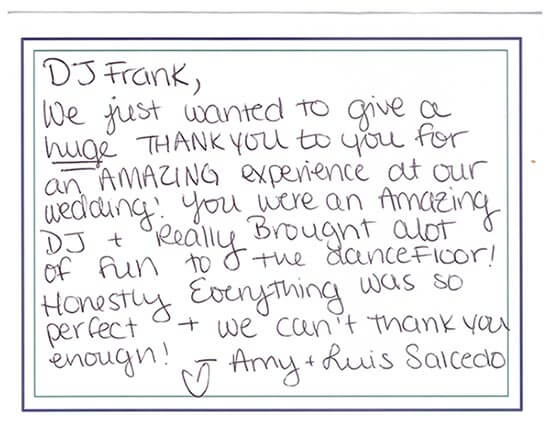 DJ Frank,
We just wanted to give a
huge THANK YOU to you for
an AMAZING experience at our
wedding! You were an Amazing
DJ + Really Brought alot
of fun to the danceFloor!
Honestly Everything was so
perfect + we can't thank you
enough! ♡ - Amy + Luis Salcedo